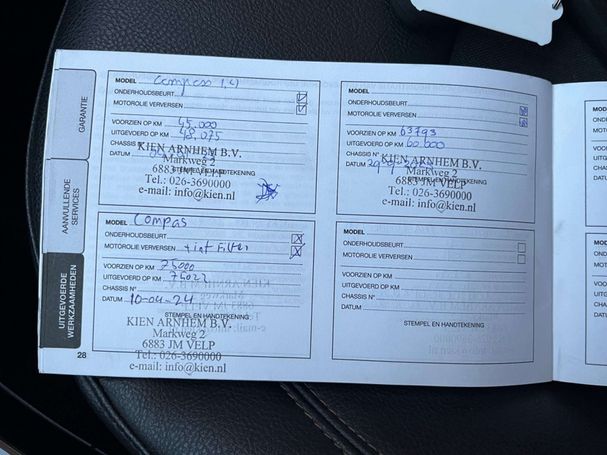 GARANTIE
AANVULLENDE
SERVICES
UITGEVOERDE
WERKZAAMHEDEN
MODEL Compass 1,4
ONDERHOUDSBEURT
MOTOROLIE VERVERSEN
VOORZIEN OP KM 45.000
UITGEVOERD OP KM 48.075
CHASSIS N°
DATUM
STEMPEL EN HANDTEKENING
KIEN ARNHEM B.V.
Markweg 2
6883 JM VELP
Tel.: 026-3690000
e-mail: info@kien.nl
MODEL
ONDERHOUDSBEURT
MOTOROLIE VERVERSEN
VOORZIEN OP KM 63793
UITGEVOERD OP KM 60.000
CHASSIS N°
DATUM
STEMPEL EN HANDTEKENING
KIEN ARNHEM B.V.
Markweg 2
6883 JM VELP
Tel.: 026-3690000
e-mail: info@kien.nl
MODEL Compas
ONDERHOUDSBEURT
MOTOROLIE VERVERSEN + int Filter
VOORZIEN OP KM 75000
UITGEVOERD OP KM 75022
CHASSIS N°
DATUM 10-04-24
STEMPEL EN HANDTEKENING
KIEN ARNHEM B.V.
Markweg 2
6883 JM VELP
Tel.: 026-3690000
e-mail: info@kien.nl
MODEL
ONDERHOUDSBEURT
MOTOROLIE VERVERSEN
VOORZIEN OP KM
UITGEVOERD OP KM
CHASSIS N°
DATUM
STEMPEL EN HANDTEKENING
28